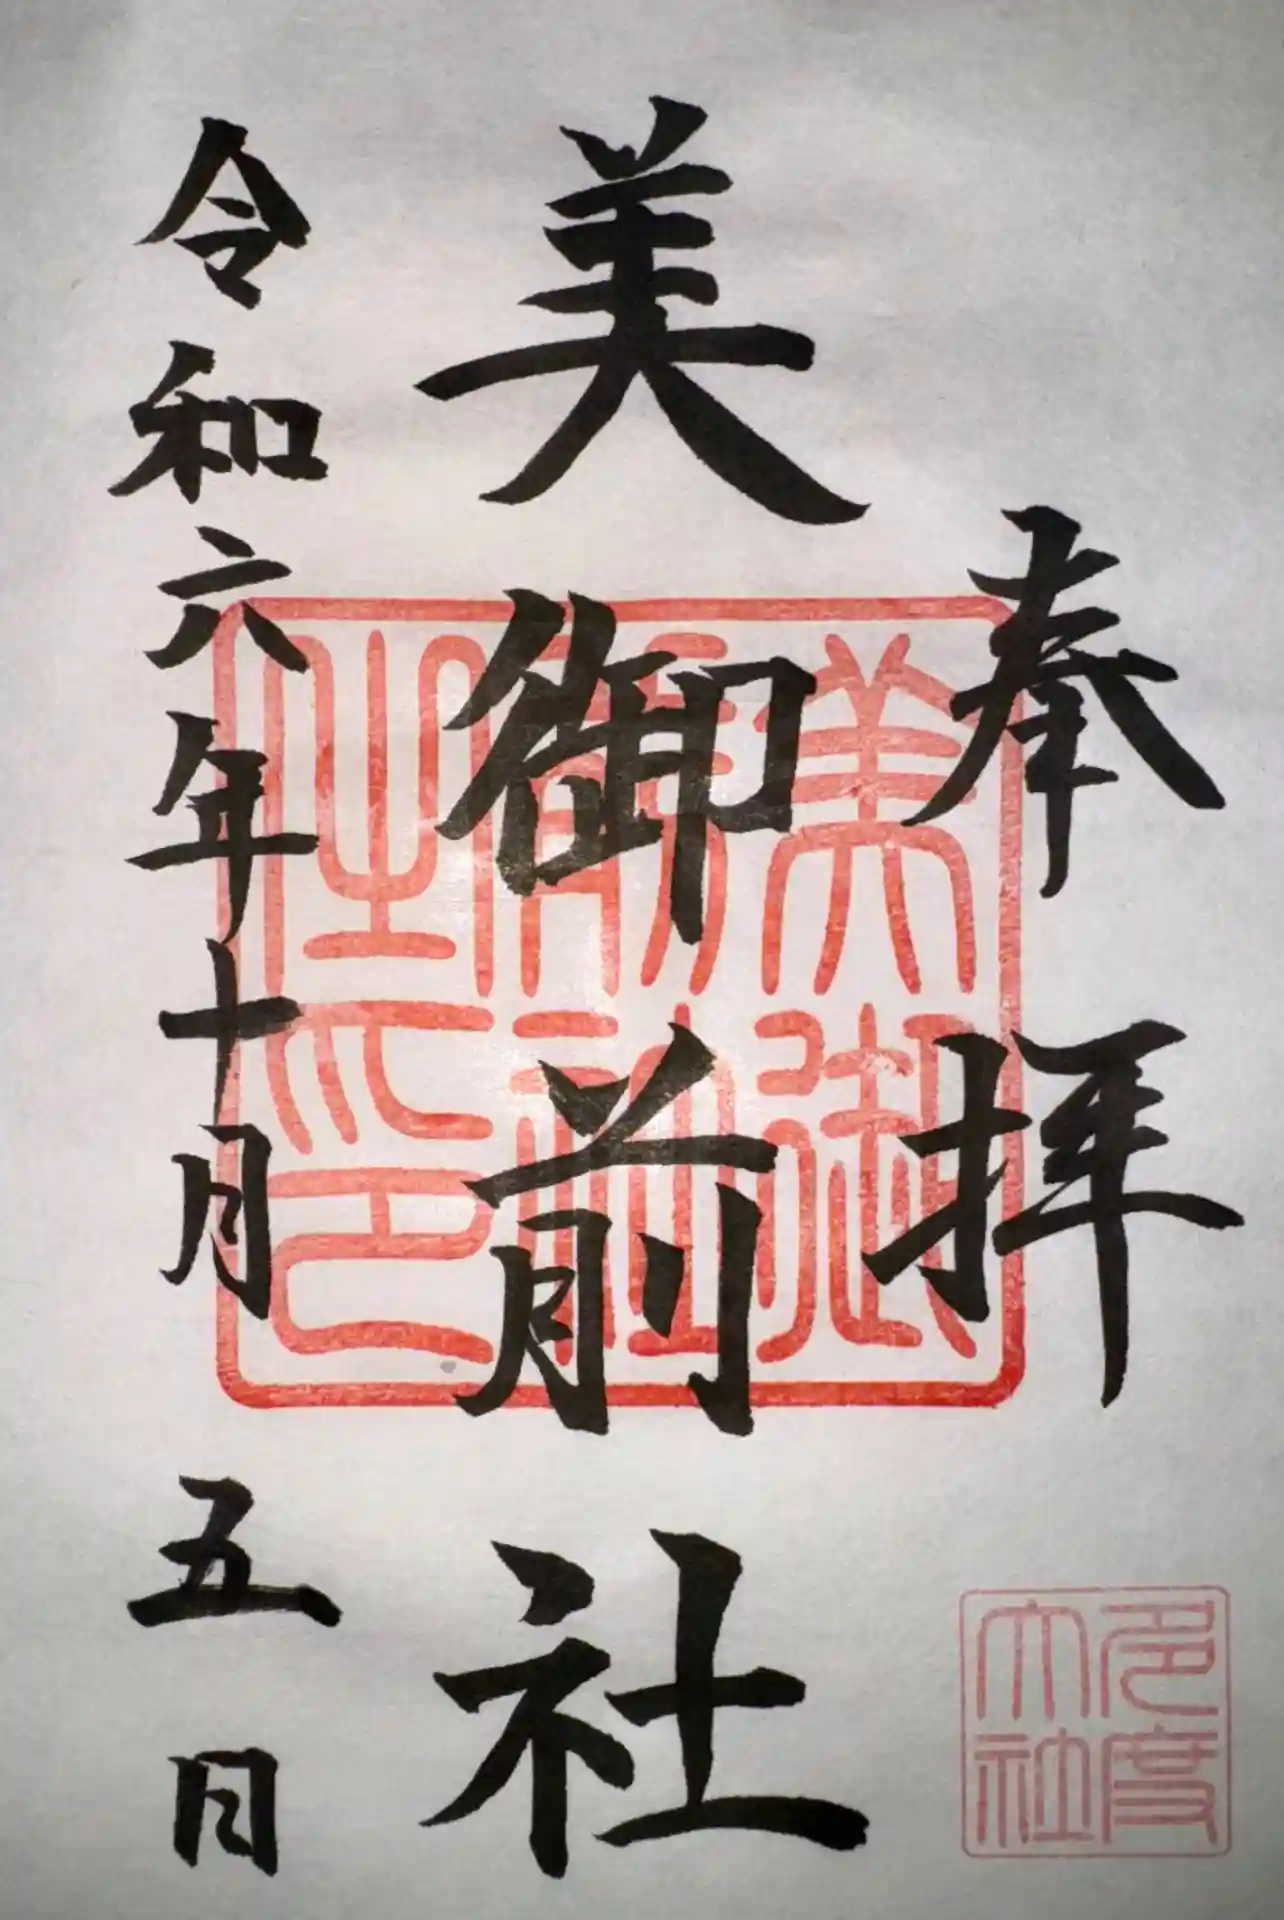 奉拝
美御前社
令和六年十月五日
美御
前社
之印
多度
大社